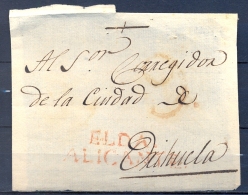 Al S.or Corregidor
de la Ciudad de
ELDA
ALICANTE
Orihuela